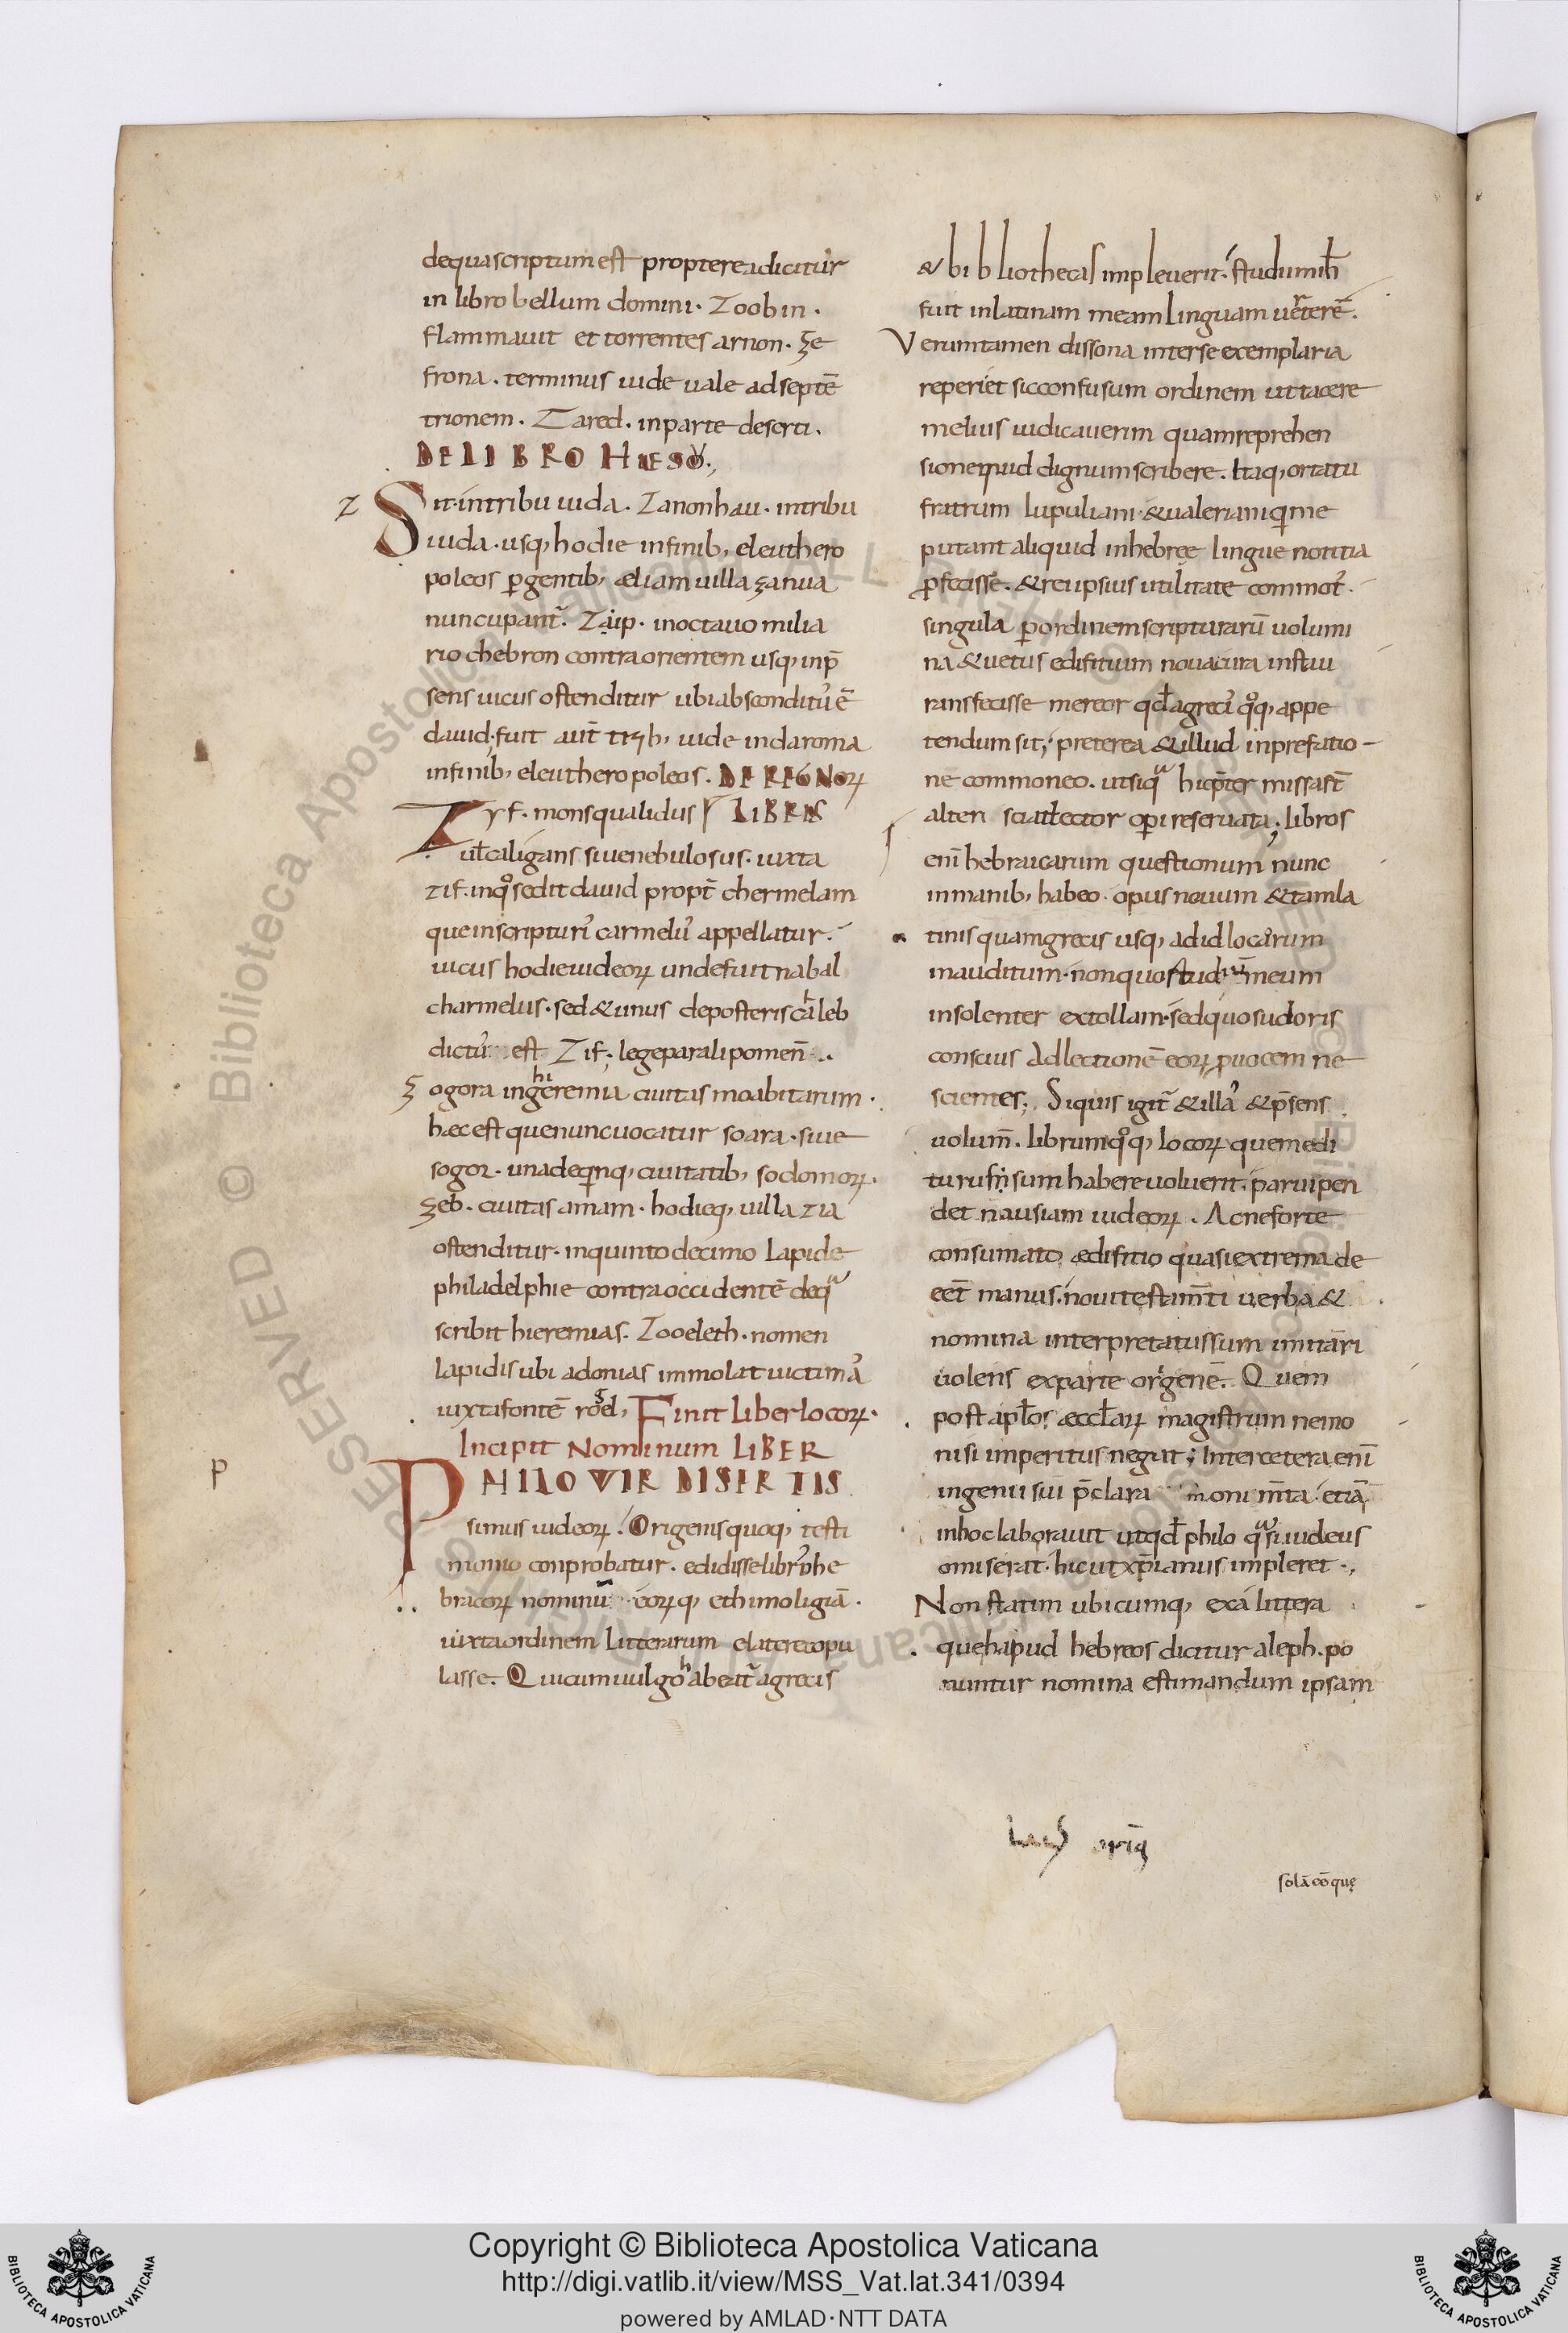 dequascriptum est propterea dicitur
in libro bellum domini. Zoobin.
flammauit et torrentes arnon. Ze
frona. terminus iude uale ad septē
trionem. Zared. in parte deserti.
DE LIBRO HIESU.
z
Sit. in tribu iuda. Zanonhau. in tribu
iuda. usq; hodie in finib; eleuthero
poleos ꝑgentib; æliam uilla zanua
nuncupant̄. Zip. in octauo milia
rio chebron contra orientem usq; inp̄
sens uicus ostenditur ubi absconditus ē
dauid. fuit aut̄ trib; iude in daroma
in finib; eleutheropoleos. DE REGNOꝝ
LIBRIS
Zyf. mons qualidus
ut̄ caligans siue nebulosus. iuxta
zif. inqͦ sedit dauid propt̄ chermelam
que in scripturis carmelus appellatur.
uicus hodie iudeoꝝ unde fuit nabal
charmelus. sed & unus de posteris caleb
dictus est Zif; lege paralipomen̄.
Zogora in hieremia ciuitas moabitarum.
hæc est que nunc uocatur soara. siue
sogor. una de qinq; ciuitatib; sodomoꝝ.
Zeb. ciuitas amam. hodieq; uilla zia
ostenditur. in quinto decimo lapide
philadelphie contra occidentē deqᵃ
scribit hieremias. Zooeleth. nomen
lapidis ubi adonias immolat uictimas
iuxta fontē rogel, Finit liber locoꝝ.
Incipit Nominum LIBER
p
PHILO VIR DISERTIS
simus iudeoꝝ. Origenis quoq; testi
monio conprobatur. edidisse libr̄ he
braeoꝝ nominū eoꝝq; ethimoligiā.
iuxta ordinem litterarum elatere copu
lasse. Qui cum uulgo habeat̄ a grecis
& bibliothecas impleuerit. studii mih̄
fuit in latinam meam linguam uertere.
Verumtamen dissona inter se exemplaria
reperi et sic confusum ordinem ut tacere
melius iudicauerim quam reprehen
sione quid dignum scribere. Itaq; ortatu
fratrum lupuliani. & ualeriani qi me
putant aliquid in hebreę lingue notitia
ꝓfecisse. & rei ipsius utilitate commot'.
singula ꝑ ordinem scripturarū uolumi
na & uetus edifitium noua cura instau
rans fecisse mereor qd̄ a grecis qͦq; appe
tendum sit; preterea & illud in prefatio
ne commoneo. ut siqᵃ hic p̄ter missa st̄
alteri sciat lector oꝑi reseruata; libros
eni hebraicarum questionum nunc
in manib; habeo. opus nouum & tam la
tinis quam grecis usq; ad id locorum
inauditum. non quo studium meum
insolenter extollam. sed quo sudoris
conscius ad lectionē eoꝝ ꝓuocem ne
scientes; Siquis igit̄ & illa & p̄sens
uolum̄. librum qͦq; locoꝝ quem edi
turus sum habere uoluerit. parui pen
det nausiam iudeoꝝ. Ac ne forte
consumato ædifitio quasi extrema de
eēt manus. noui testam̄ti uerba &
nomina interpretatus sum imitari
uolens ex parte origenē. Quem
post apl̄os æccl̄aꝝ magistrum nemo
nisi imperitus negat; Inter cetera eni
ingenii sui p̄clara monim̄ta etiā
in hoc laborauit ut qd̄ philo qᵃsi iudeus
omiserat. hic ut xp̄ianus impleret.
Non statim ubicumq; ex a littera
que hapud hebreos dicitur aleph. po
nuntur nomina estimandum ipsam
solā eē quę
Copyright © Biblioteca Apostolica Vaticana
http://digi.vatlib.it/view/MSS_Vat.lat.341/0394
powered by AMLAD·NTT DATA
BIBLIOTECA APOSTOLICA VATICANA
BIBLIOTECA APOSTOLICA VATICANA